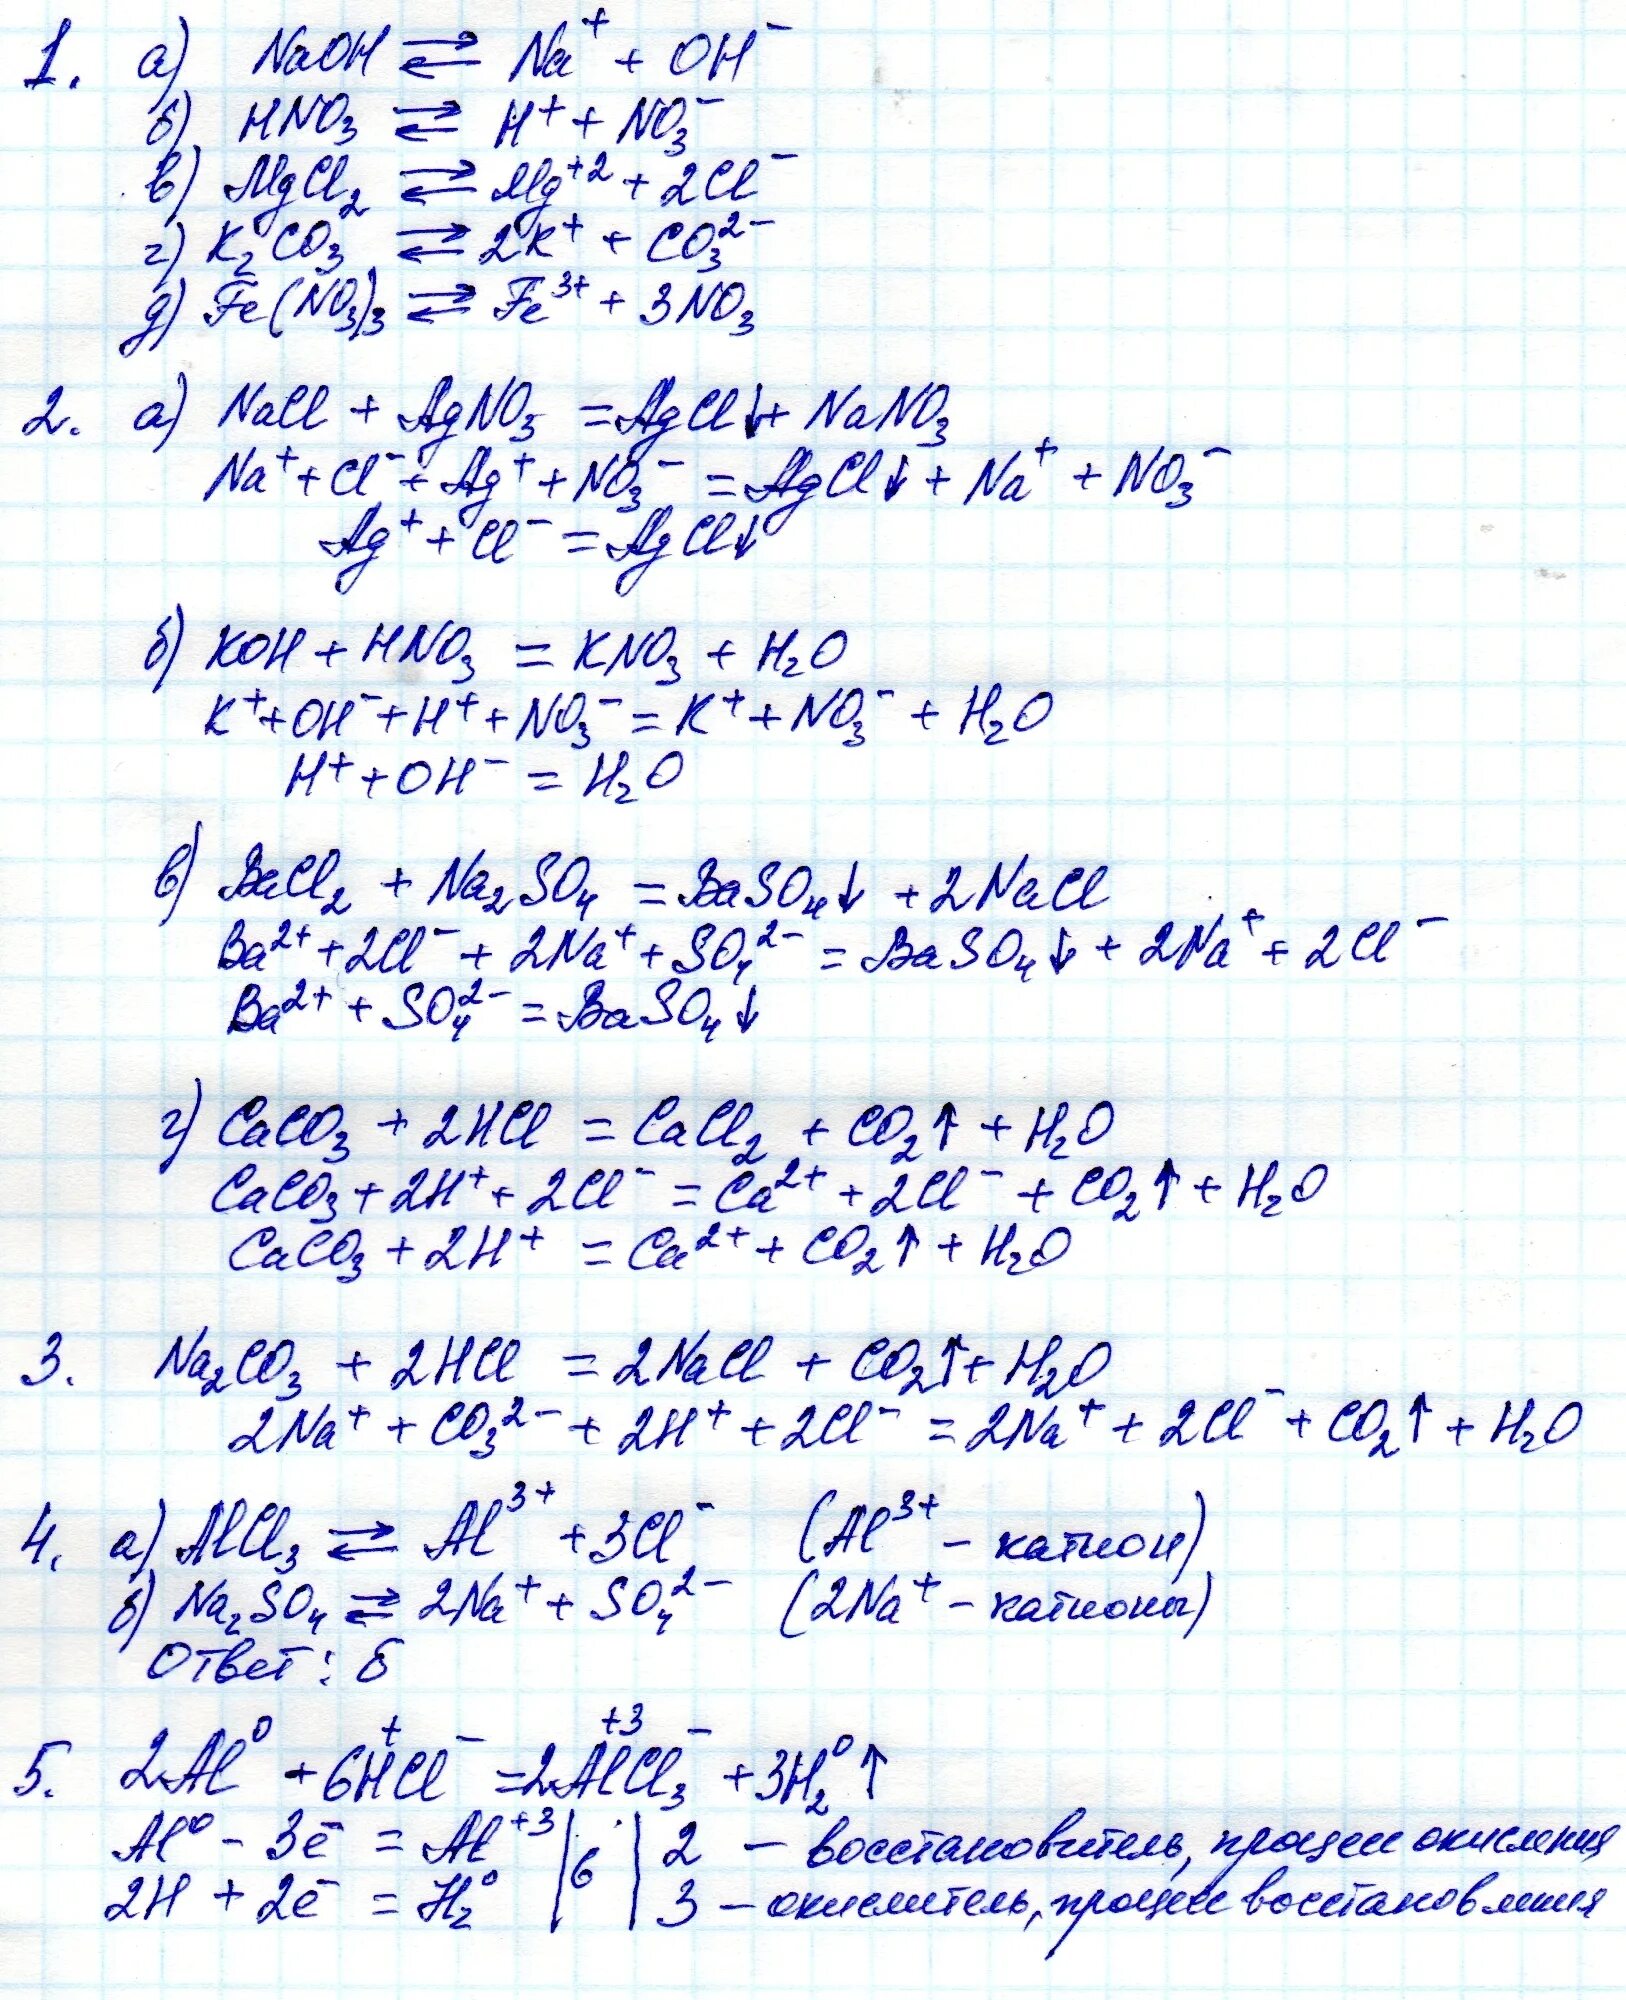 1. а) NaOH ⇄ Na⁺ + OH⁻
б) HNO₃ ⇄ H⁺ + NO₃⁻
в) MgCl₂ ⇄ Mg⁺² + 2Cl⁻
г) K₂CO₃ ⇄ 2K⁺ + CO₃²⁻
д) Fe(NO₃)₃ ⇄ Fe³⁺ + 3NO₃
2. а) NaCl + AgNO₃ = AgCl↓ + NaNO₃
Na⁺ + Cl⁻ + Ag⁺ + NO₃⁻ = AgCl↓ + Na⁺ + NO₃⁻
Ag⁺ + Cl⁻ = AgCl↓
б) KOH + HNO₃ = KNO₃ + H₂O
K⁺ + OH⁻ + H⁺ + NO₃⁻ = K⁺ + NO₃⁻ + H₂O
H⁺ + OH⁻ = H₂O
в) BaCl₂ + Na₂SO₄ = BaSO₄↓ + 2NaCl
Ba²⁺ + 2Cl⁻ + 2Na⁺ + SO₄²⁻ = BaSO₄↓ + 2Na⁺ + 2Cl⁻
Ba²⁺ + SO₄²⁻ = BaSO₄↓
г) CaCO₃ + 2HCl = CaCl₂ + CO₂↑ + H₂O
CaCO₃ + 2H⁺ + 2Cl⁻ = Ca²⁺ + 2Cl⁻ + CO₂↑ + H₂O
CaCO₃ + 2H⁺ = Ca²⁺ + CO₂↑ + H₂O
3. Na₂CO₃ + 2HCl = 2NaCl + CO₂↑ + H₂O
2Na⁺ + CO₃²⁻ + 2H⁺ + 2Cl⁻ = 2Na⁺ + 2Cl⁻ + CO₂↑ + H₂O
4. а) AlCl₃ ⇄ Al³⁺ + 3Cl⁻ (Al³⁺ - катион)
б) Na₂SO₄ ⇄ 2Na⁺ + SO₄²⁻ (2Na⁺ - катионы)
Ответ: б
5. 2Al⁰ + 6H⁺Cl⁻ = 2Al⁺³Cl₃⁻ + 3H₂⁰↑
Al⁰ - 3ē = Al⁺³ | 6 | 2 - восстановитель, процесс окисления
2H + 2ē = H₂⁰ | | 3 - окислитель, процесс восстановления